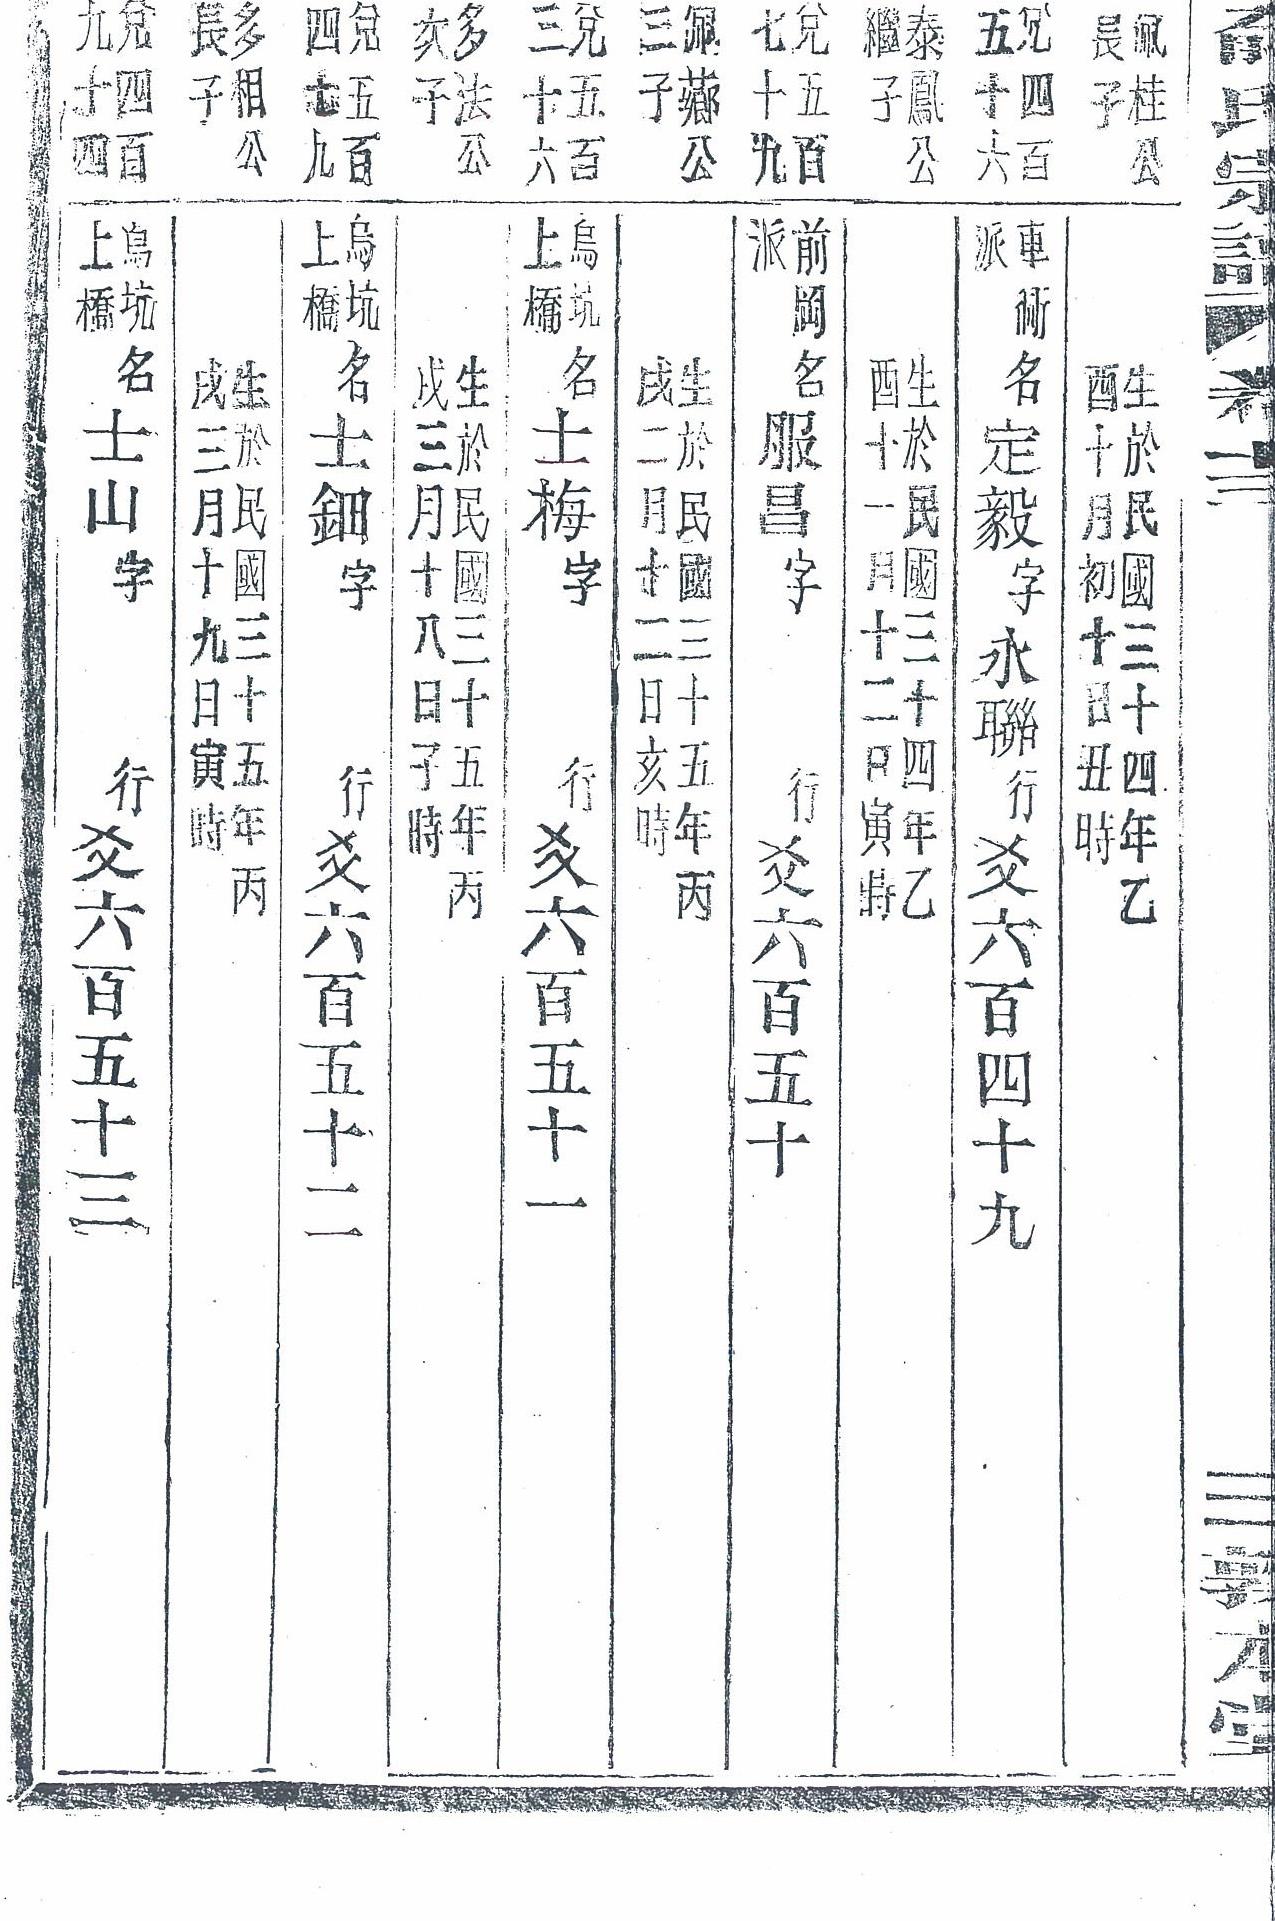 氏宗譜
卷
三 敦本堂
佩桂公
長子
兌四百
五十六
泰鳳公
繼子
兌五百
七十九
佩薌公
三子
兌五百
三十六
多法公
次子
兌五百
四十九
多相公
長子
兌四百
九十四
生於民國三十四年乙
酉十月初十日丑時
車
派
名定毅字永聯行爻六百四十九
生於民國三十四年乙
酉十一月十二日寅時
前岡
派
名服昌字 行爻六百五十
生於民國三十五年丙
戌二月十二日亥時
烏坑
上橋
名士梅字 行爻六百五十一
生於民國三十五年丙
戌三月十八日子時
烏坑
上橋
名士鈿字 行爻六百五十二
生於民國三十五年丙
戌三月十九日寅時
烏坑
上橋
名士山字 行爻六百五十三